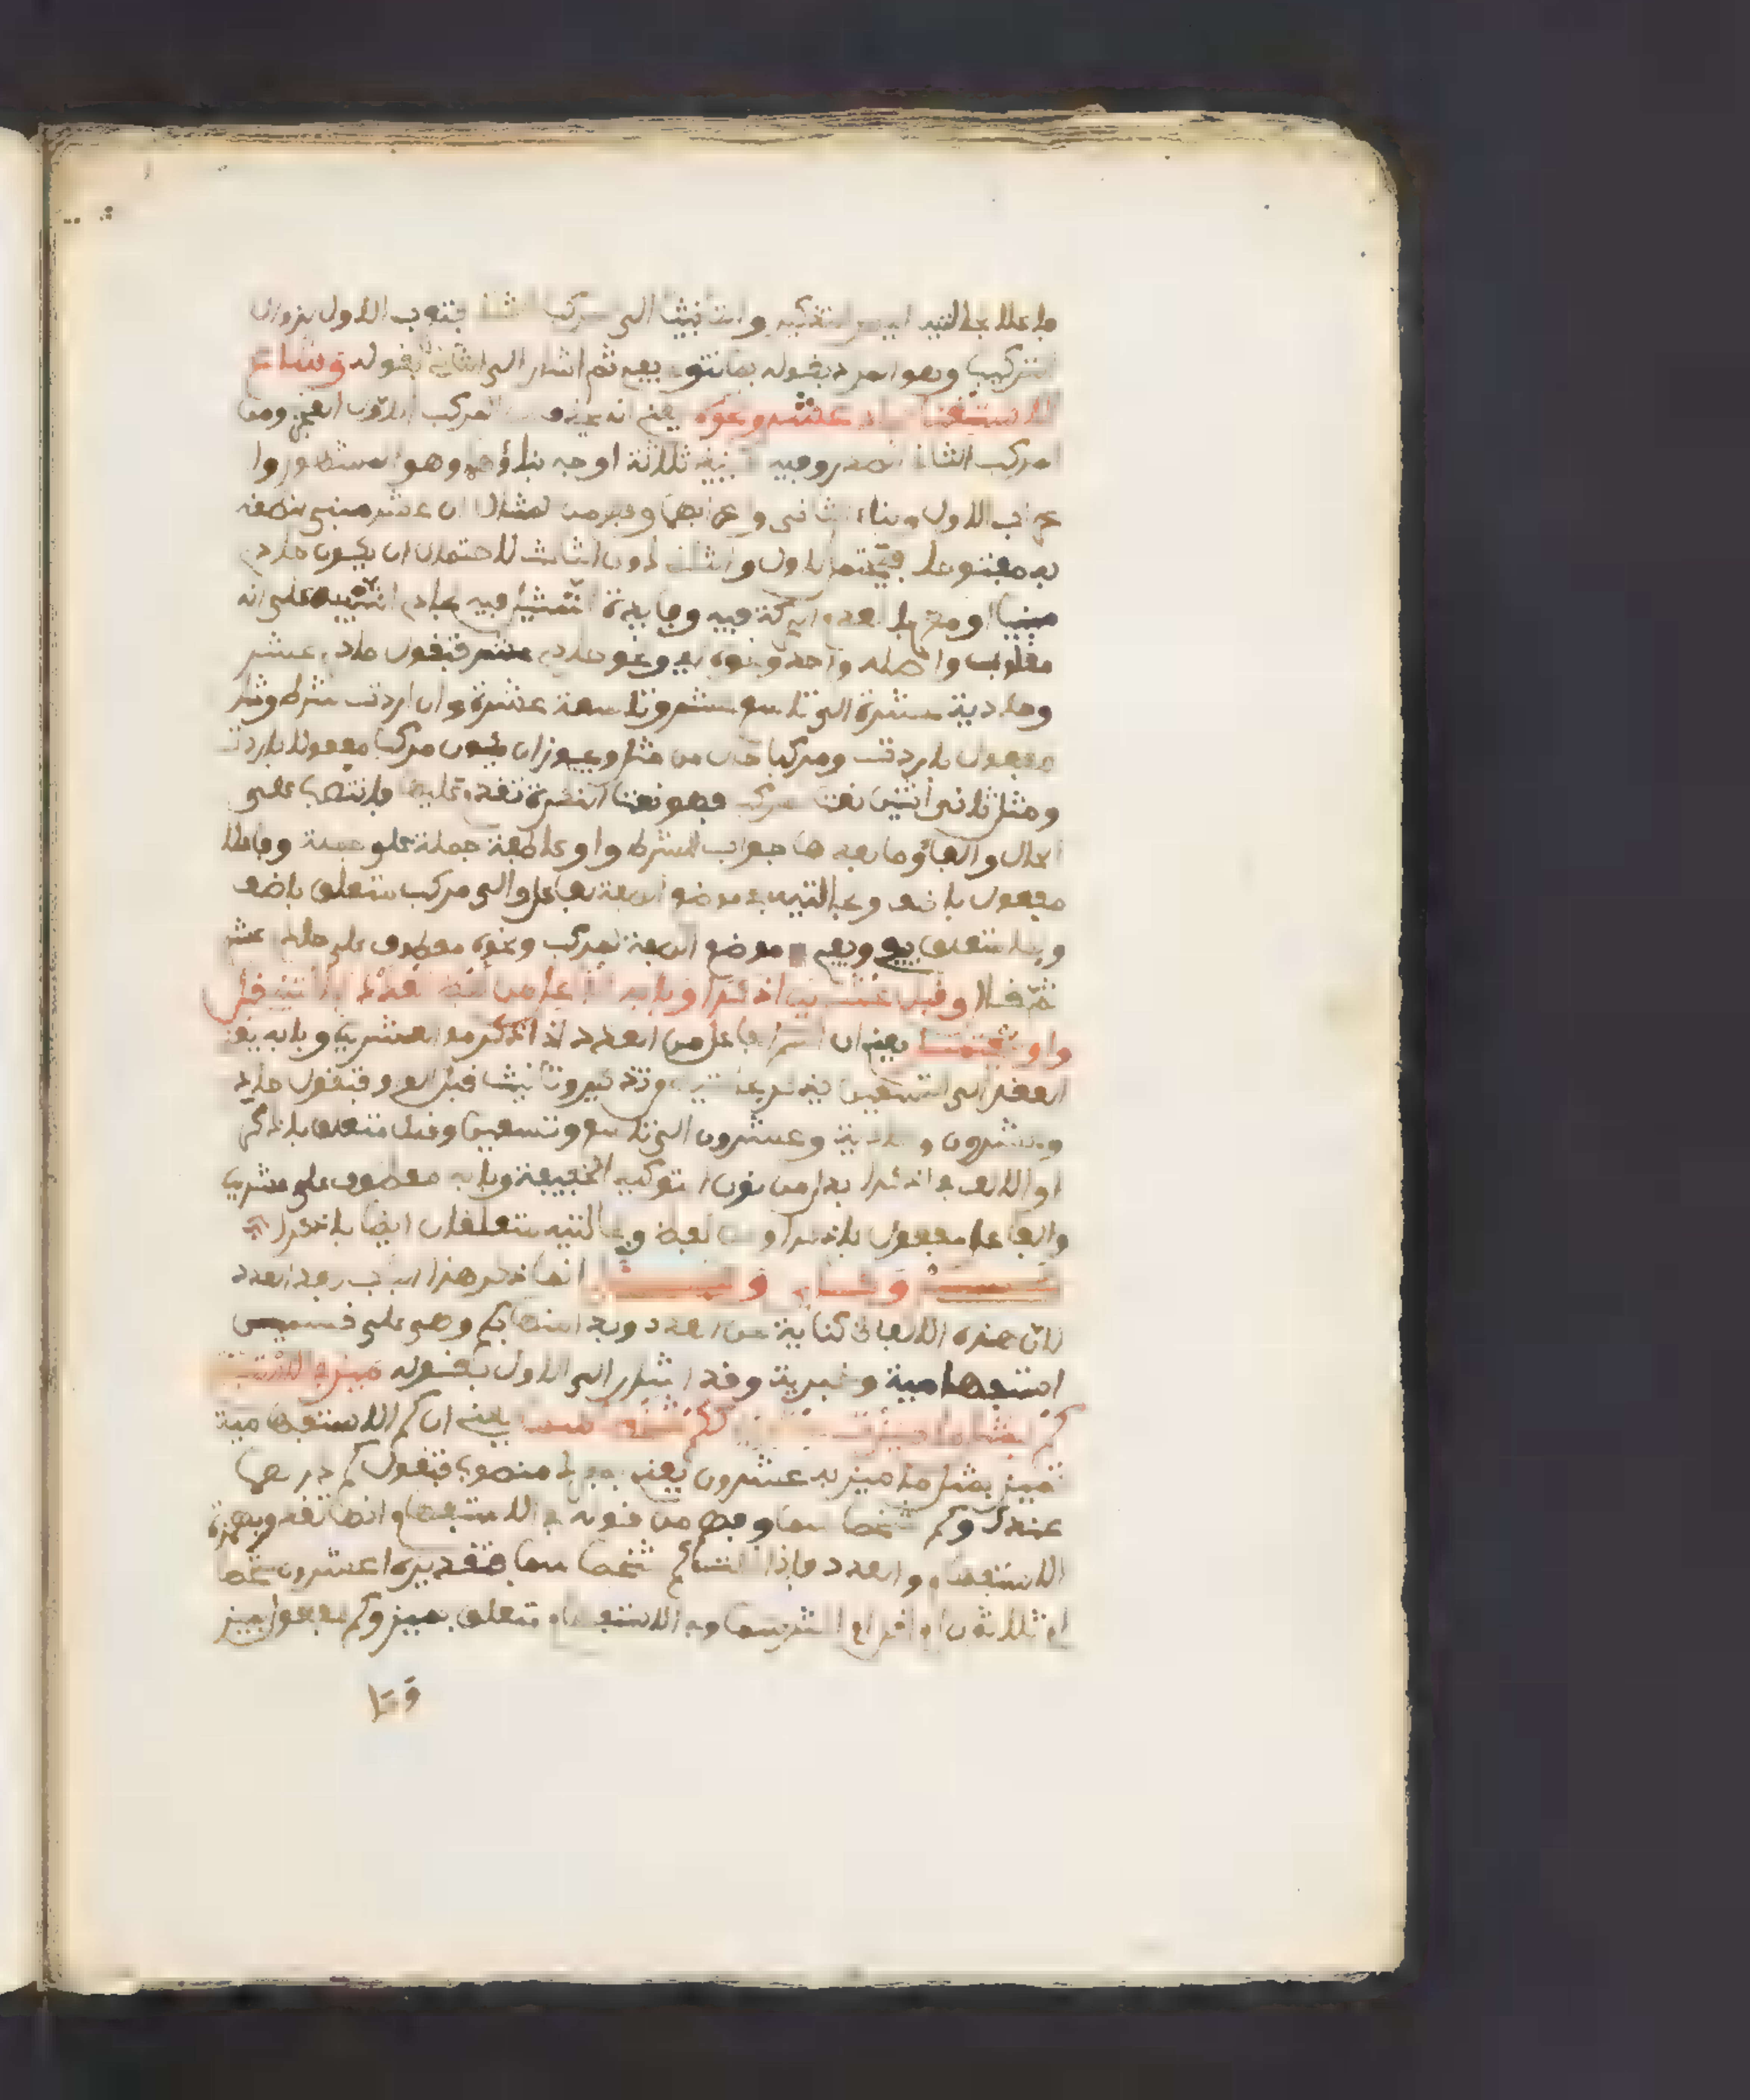 فاعلا بحالتيه التذكير والتانيث الى مركب فتعرب الاول لزوال
التركيب وهو المراد بقوله بما تنوي يفي ثم اشار الى الثاني بقوله وشاع
الاستغنا بحادي عشر ونحوه يعني انه المركب الاول العجز ومن
المركب الثاني الصدر وفيه ثلاثة اوجه بناؤهما وهو المشهور وا
عراب الاول وبناء الثاني واعرابهما وفهم من المثال ان عشر مبني لنطقه
به مفتوحا فيحتمل الاول والثاني دون الثالث لاحتمال ان يكون حادي
مبنيا او معربا لعدم الحركة فيه وفايدة التمثيل فيه بحادي التنبيه على انه
مقلوب واصله واحد ونحوه اي ونحو حادي عشر فتقول حادي عشر
وحادية عشرة الى تاسع عشر وتاسعة عشرة وان اردت شرط ومثل
مفعول باردت ومركبا حال من مثل ويجوز ان يكون مركبا مفعولا باردت
ومثل ثاني اثنين نعت مركب فهو نعت النكرة تقدم عليها فانتصب على
الحال والفاء وما بعدها جواب الشرط واو عاطفة جملة على جملة وفاعلا
مفعول باضف وبحالتيه في موضع الصفة لفاعل والى مركب متعلق باضف
وبما متعلق بيفي ويفي في موضع الصفة لمركب ونحوه معطوف على حادي عشر
ثم قال وقبل عشرين اذكرا وبابه الفاعل من لفظ العدد بحالتيه قبل
واو يعتمد يعني ان اسم الفاعل من العدد اذا ذكر مع العشرين وبابه يعني
العقد الى التسعين يذكر عشرين وتذكير وتانيث قبل الواو فتقول حاد
وعشرون وحادية وعشرون الى تاسع وتسعين وقبل متعلق باذكر
او الالف في اذكرا بدل من نون التوكيد الخفيفة وبابه معطوف على عشرين
والفاعل مفعول باذكرا ومن لفظ وبحالتيه متعلقان ايضا باذكرا
كم وكاي وكذا انما ذكر هذا الباب بعد العدد
لان هذه الالفاظ كناية عن العدد وبدا منها بكم وهي على قسمين
استفهامية وخبرية وقد اشار الى الاول بقوله ميز في الاستفهام
كم بمثل ما ميزت عشرين ككم شخصا سما يعني ان كم الاستفهامية
تميز بمثل ما ميز به عشرون يعني بمفرد منصوب فتقول كم درهما
عندك وكم شخصا سما وفهم من قوله في الاستفهام انها تقدر بهمزة
الاستفهام والعدد فاذا قلت كم شخصا سما فتقديره اعشرون شخصا
ام ثلاثون ام اقل ام اكثر سما وفي الاستفهام متعلق بميز وكم مفعول بميز
وما